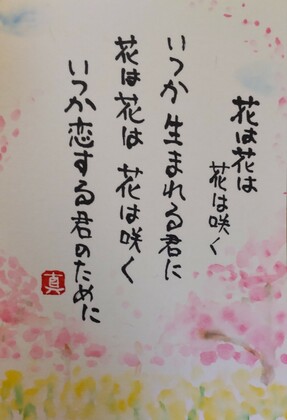 花は花は
花は咲く
いつか生まれる君に
花は花は 花は咲く
いつか恋する君のために
真